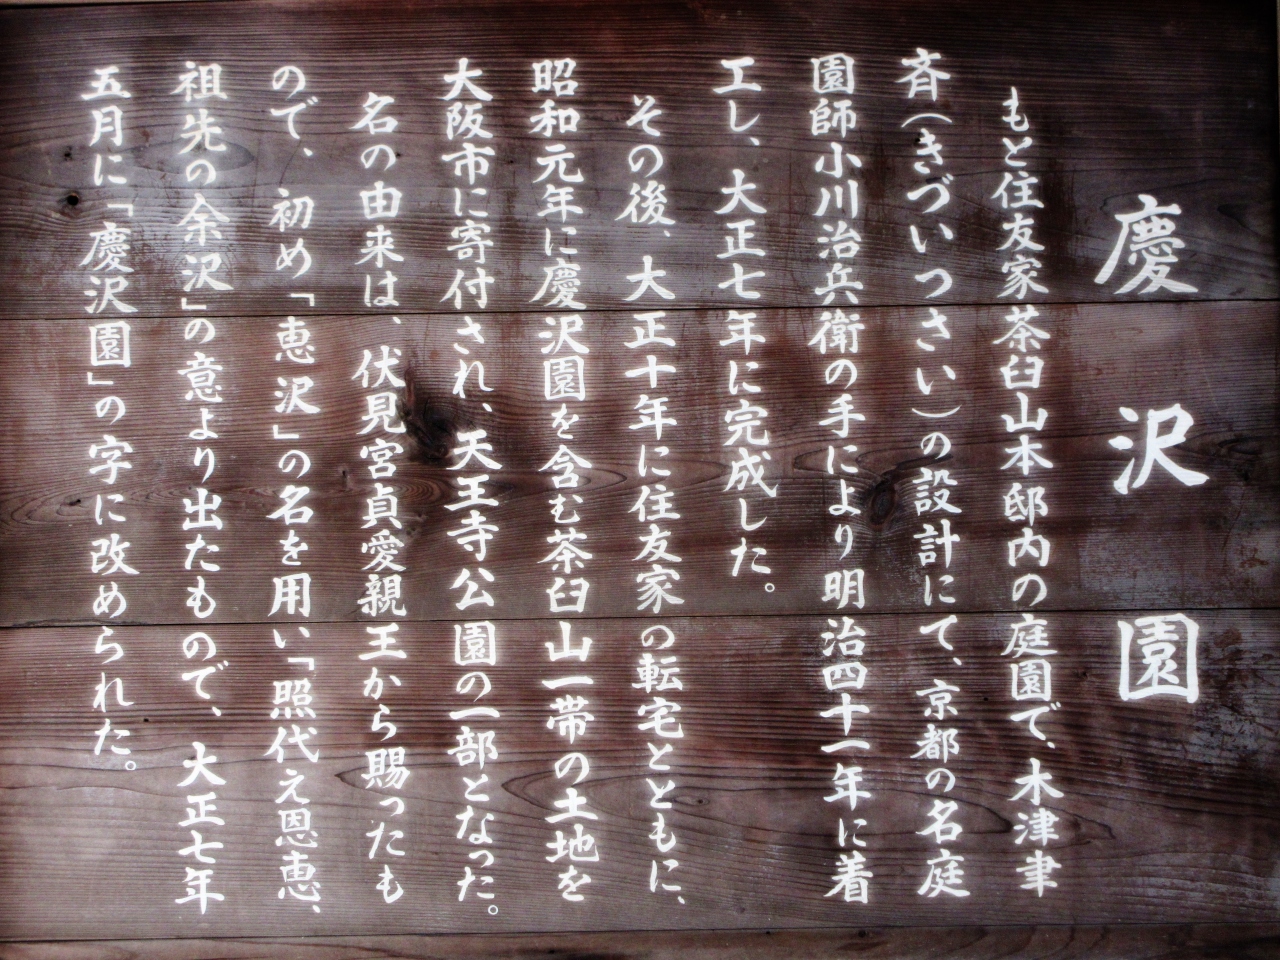 慶沢園
もと住友家茶臼山本邸内の庭園で、木津聿
斉（きづいつさい）の設計にて、京都の名庭
園師小川治兵衛の手により明治四十一年に着
工し、大正七年に完成した。
その後、大正十年に住友家の転宅とともに、
昭和元年に慶沢園を含む茶臼山一帯の土地を
大阪市に寄付され、天王寺公園の一部となった。
名の由来は、伏見宮貞愛親王から賜ったも
ので、初め「恵沢」の名を用い「照代え恩恵、
祖先の余沢」の意より出たもので、大正七年
五月に「慶沢園」の字に改められた。